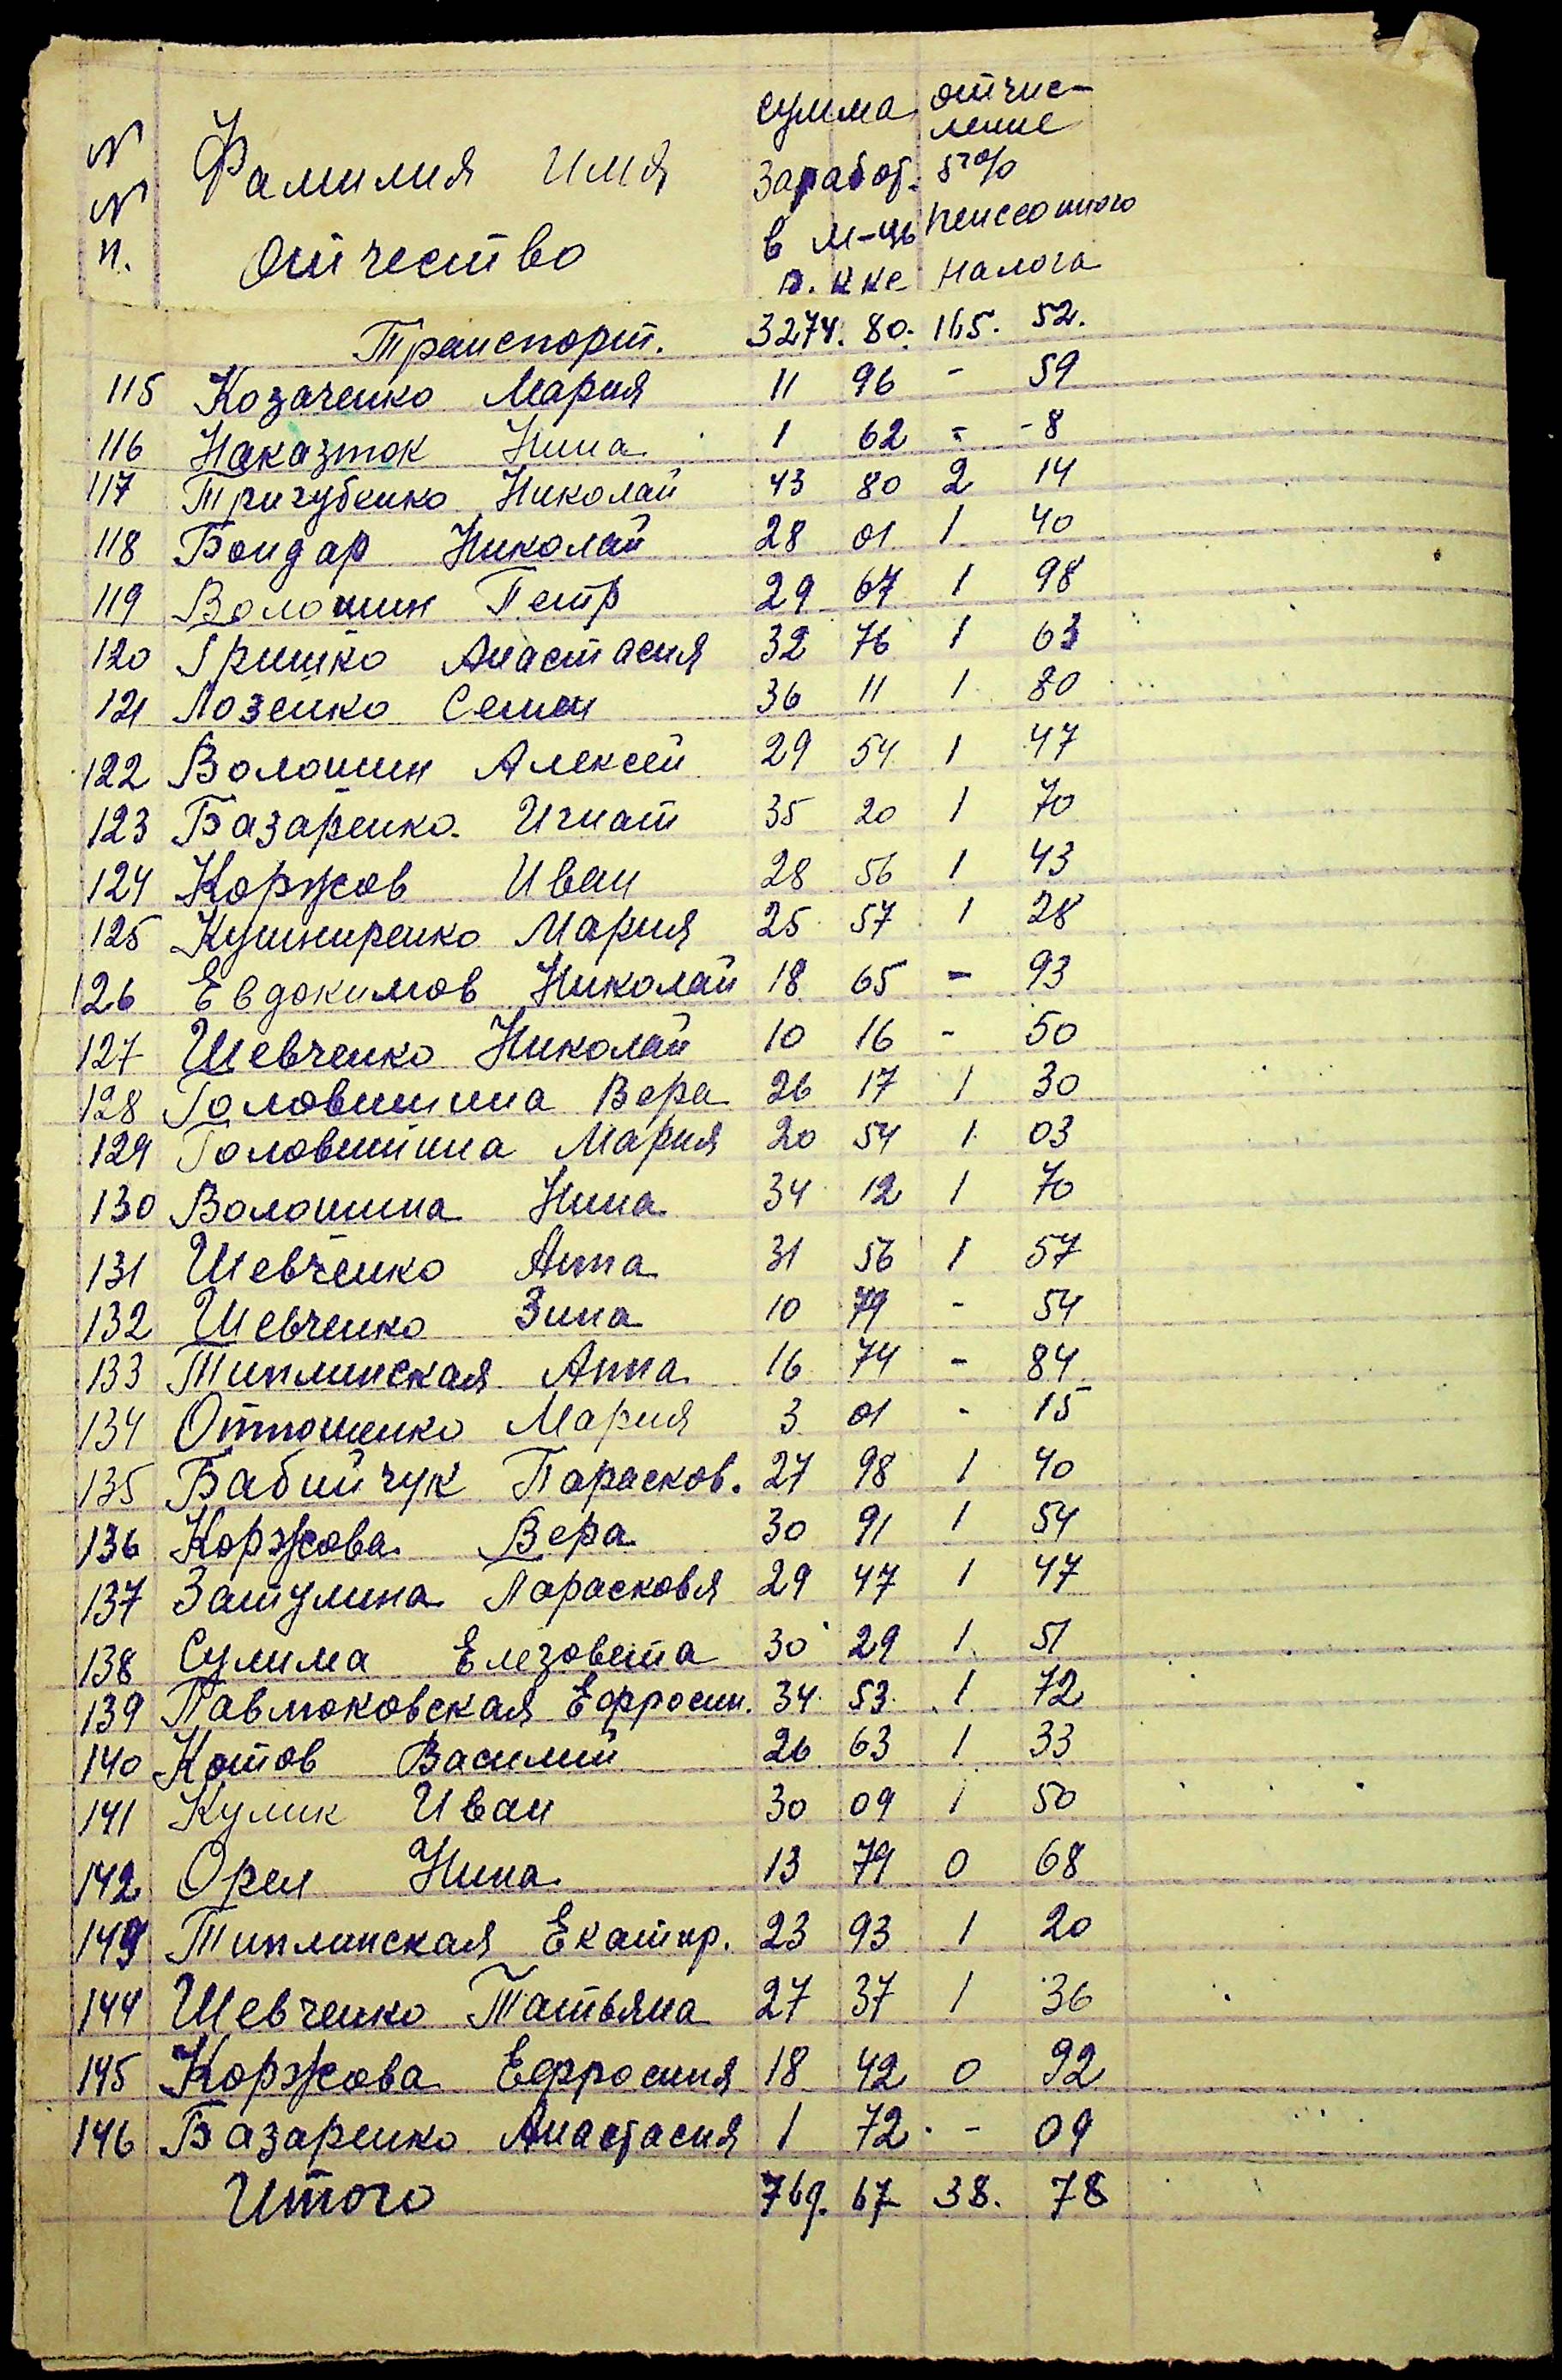 N N п. Фамилия Имя Отчество сумма заработ. в м-ць р. кке отчис-ление 5% пенссонного налога
Транспорт. 3274. 80. 165. 52.
115 Козаченко Мария 11 96 - 59
116 Наказток Нина 1 62 - - 8
117 Тригубенко Николай 43 80 2 14
118 Бондар Николай 28 01 1 40
119 Волошин Петр 29 67 1 98
120 Гришко Анастасия 32 76 1 63
121 Лозенко Семен 36 11 1 80
122 Волошин Алексей 29 54 1 47
123 Базаренко Игнат 35 20 1 70
124 Коржов Иван 28 56 1 43
125 Кушниренко Мария 25 57 1 28
126 Евдокимов Николай 18 65 - 93
127 Шевченко Николай 10 16 - 50
128 Головшнина Вера 26 17 1 30
129 Головшнина Мария 20 54 1 03
130 Волошина Нина 34 12 1 70
131 Шевченко Анна 31 56 1 57
132 Шевченко Зина 10 79 - 54
133 Типлинская Анна 16 74 - 84
134 Оттошенко Мария 3 01 - 15
135 Бабийчук Парасков. 27 98 1 40
136 Коржова Вера 30 91 1 54
137 Затулина Парасковя 29 47 1 47
138 Сулима Елезовета 30 29 1 51
139 Павлюковская Ефросин. 34 53 1 72
140 Котов Василий 26 63 1 33
141 Кулик Иван 30 09 1 50
142 Орел Нина 13 79 0 68
143 Типлинская Екатир. 23 93 1 20
144 Шевченко Татьяна 27 37 1 36
145 Коржова Ефросиня 18 42 0 92
146 Базаренко Анастасия 1 72 - 09
Итого 769. 67 38. 78